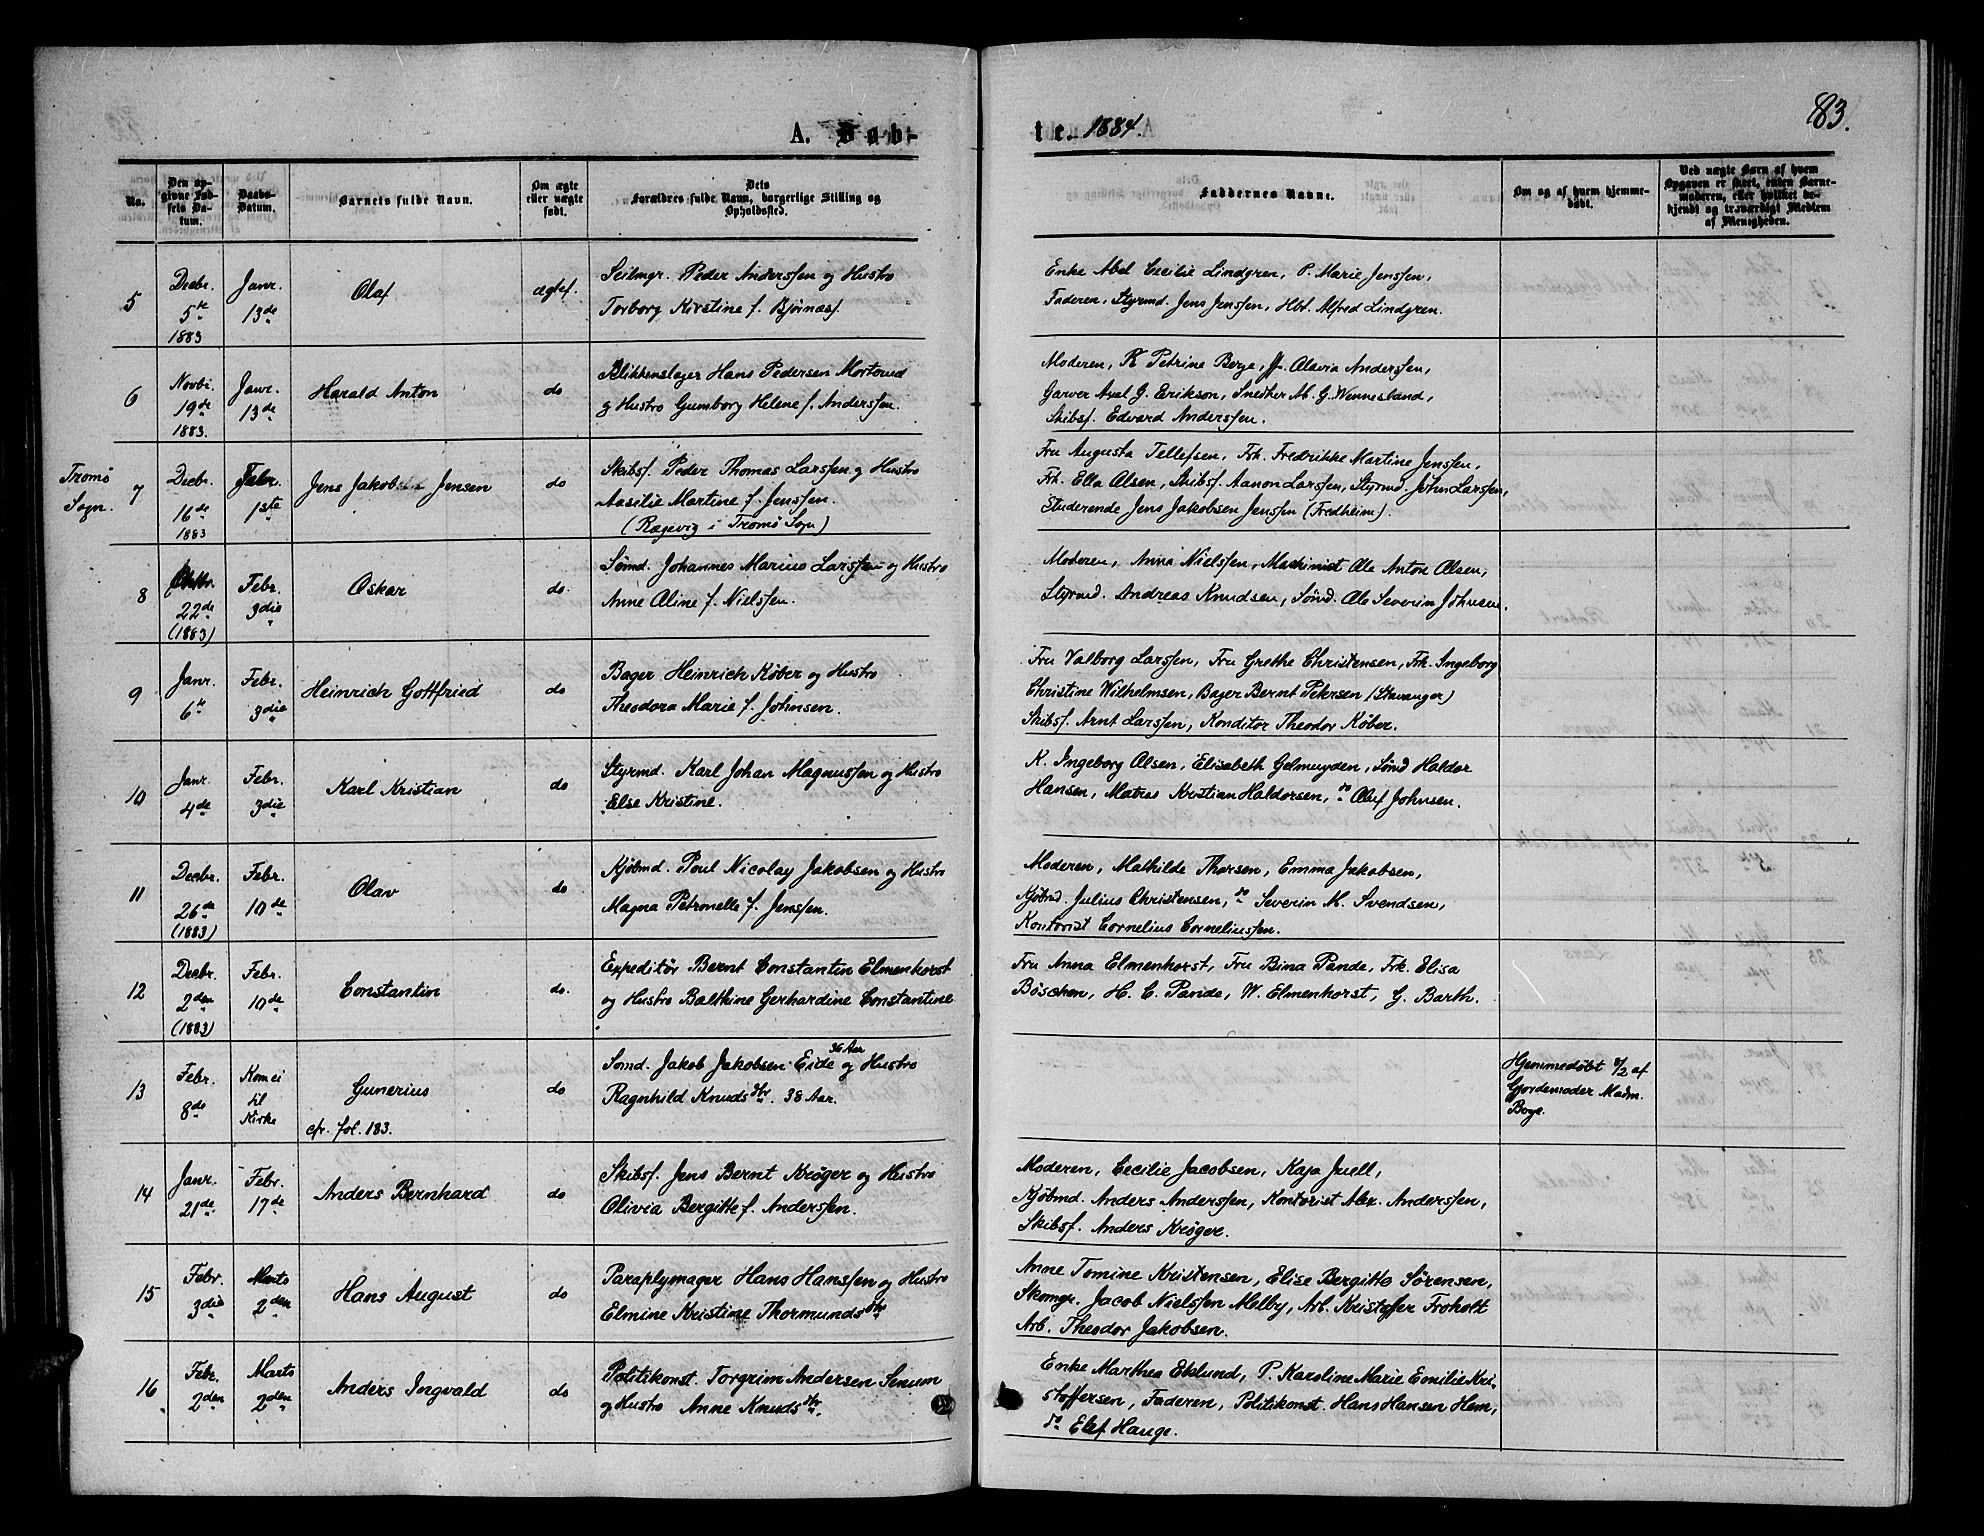 83.
A. Døb-
te. 1884.
No.
Den op-
givne Fød-
sels Da-
tum.
Daabs-
Datum.
Barnets fulde Navn.
Om ægte
eller uægte
født.
Dets
Forældres fulde Navn, borgerlige Stilling og
Opholdssted.
Faddernes Navne.
Om og af hvem hjemme-
døbt.
Ved uægte Børn af hvem
Opgaven er skeet, enten Barne-
moderen, eller hvilket be-
kjendt og troværdigt Medlem
af Menigheden.
5
Decbr.
5te
1883
Janr.
13de
Olaf
ægtef.
Seilmgr. Peder Anderssen og Hustro
Torborg Kirstine f. Bjørnass.
Enke Abel Cecilie Lindgren, P. Marie Jenssen,
Faderen, Styrmd. Jens Jenssen, Hbt. Alfred Lindgren.
6
Novbr.
19de
1883.
Janr.
13de
Harald Anton
do
Blikkenslager Hans Pedersen Mortoud
og Hustro Gunborg Helene f. Anderssen.
Moderen, K Petrine Berge, Olavia Anderssen,
Garver Axel G. Erikson, Snedker M. G. Wennesland,
Skibsf. Edvard Anderssen.
Tromø
Sogn.
7
Decbr.
16de
1883
Febr.
1ste
Jens Jakob Jensen
do
Skibsf. Peder Thomas Larssen og Hustro
Aasilie Martine f. Jenssen.
(Rægevig i Tromø Sogn)
Fru Augusta Tellefsen, Frk. Fredrikke Martine Jenssen,
Frk. Ella Olsen, Skibsf. Aanon Larssen, Styrmd. John Larssen,
Studerende Jens Jakobsen Jenssen (Fredheim).
8
22de
(1883)
Febr.
3die
Oskar
do.
Sømd. Johannes Marius Larssen og Hustro
Anne Oline f. Nielssen.
Moderen, Anna Nielssen, Maskinist Ole Anton Olsen,
Styrmd. Andreas Knudsen, Sømd. Ole Severin Johnsen.
9
Janr.
6te
Febr.
3die
Heinrich Gottfried
do
Bager Heinrich Køber og Hustro
Theodora Marie f. Johnsen.
Fru Valborg Larssen, Fru Grethe Christensen, Frk. Ingeborg
Christine Wilhelmsen, Bager Bernt Petersen (Stavanger)
Skibsf. Arnt Larssen, Konditor Theodor Køber.
10
Janr.
4de
Febr.
3die
Karl Kristian
do
Styrmd. Karl Johan Magnussen og Hustro
Else Kristine.
K. Ingeborg Olsen, Elisabeth Gelmuyden, Sømd Haldor
Hansen, Matros Kristian Haldorsen, do Oluf Johnsen.
11
Decbr.
26de
(1883)
Febr.
10de
Olav
do
Kjøbmd. Poul Nicolay Jakobsen og Hustro
Magna Petronelle f. Jenssen.
Moderen, Mathilde Thorsen, Emma Jakobsen,
Kjøbmd. Julius Christensen, do Severin M. Svendsen,
Kontorist Cornelius Corneliussen.
12
Decbr.
2den
(1883)
Febr.
10de
Constantin
do.
Expeditør Bernt Constantin Elmenhorst
og Hustro Bolthine Gerhardine Constantine
Fru Anna Elmenhorst, Fru Bina Pande, Frk. Elisa
Böschen, H. C. Pande, W. Elmenhorst, G. Barth.
13
Febr.
8de
Kom ei
til
Kirke
Gunerius
cfr. fol. 183.
do
Sømd. Jakob Jakobsen Eide 36 Aar og Hustro
Ragnhild Knudsdtr. 38 Aar.
Hjemmedøbt 8/2 af
Gjordemoder Madm.
Boye.
14
Janr.
21de
Febr.
17de
Anders Bernhard
do
Skibsf. Jens Bernt Krøger og Hustro
Olivia Bergitte f. Anderssen.
Moderen, Cecilie Jacobsen, Kaja Juell,
Kjøbmd. Anders Anderssen, Kontorist Alex. Anderssen,
Skibsf. Anders Krøger.
15
Febr.
3die
Marts
2den
Hans August
do
Paraplymager Hans Hanssen og Hustro
Elmine Kristine Thormundsdtr
Anne Tomine Kristensen, Elise Bergitte Sørensen,
Skomgr. Jacob Nielssen Melby, Arb. Kristoffer Froholt
Arb. Theodor Jakobsen.
16
Febr.
2den
Marts
2den
Anders Ingvald
do
Politikonst. Torgrim Andersen Senum
og Hustro Anne Knudsdtr.
Enke Marthea Eklund, P. Karoline Marie Emilie Kri-
stoffersen, Faderen, Politikonst. Hans Hansen Hem,
do Elef Hauge.